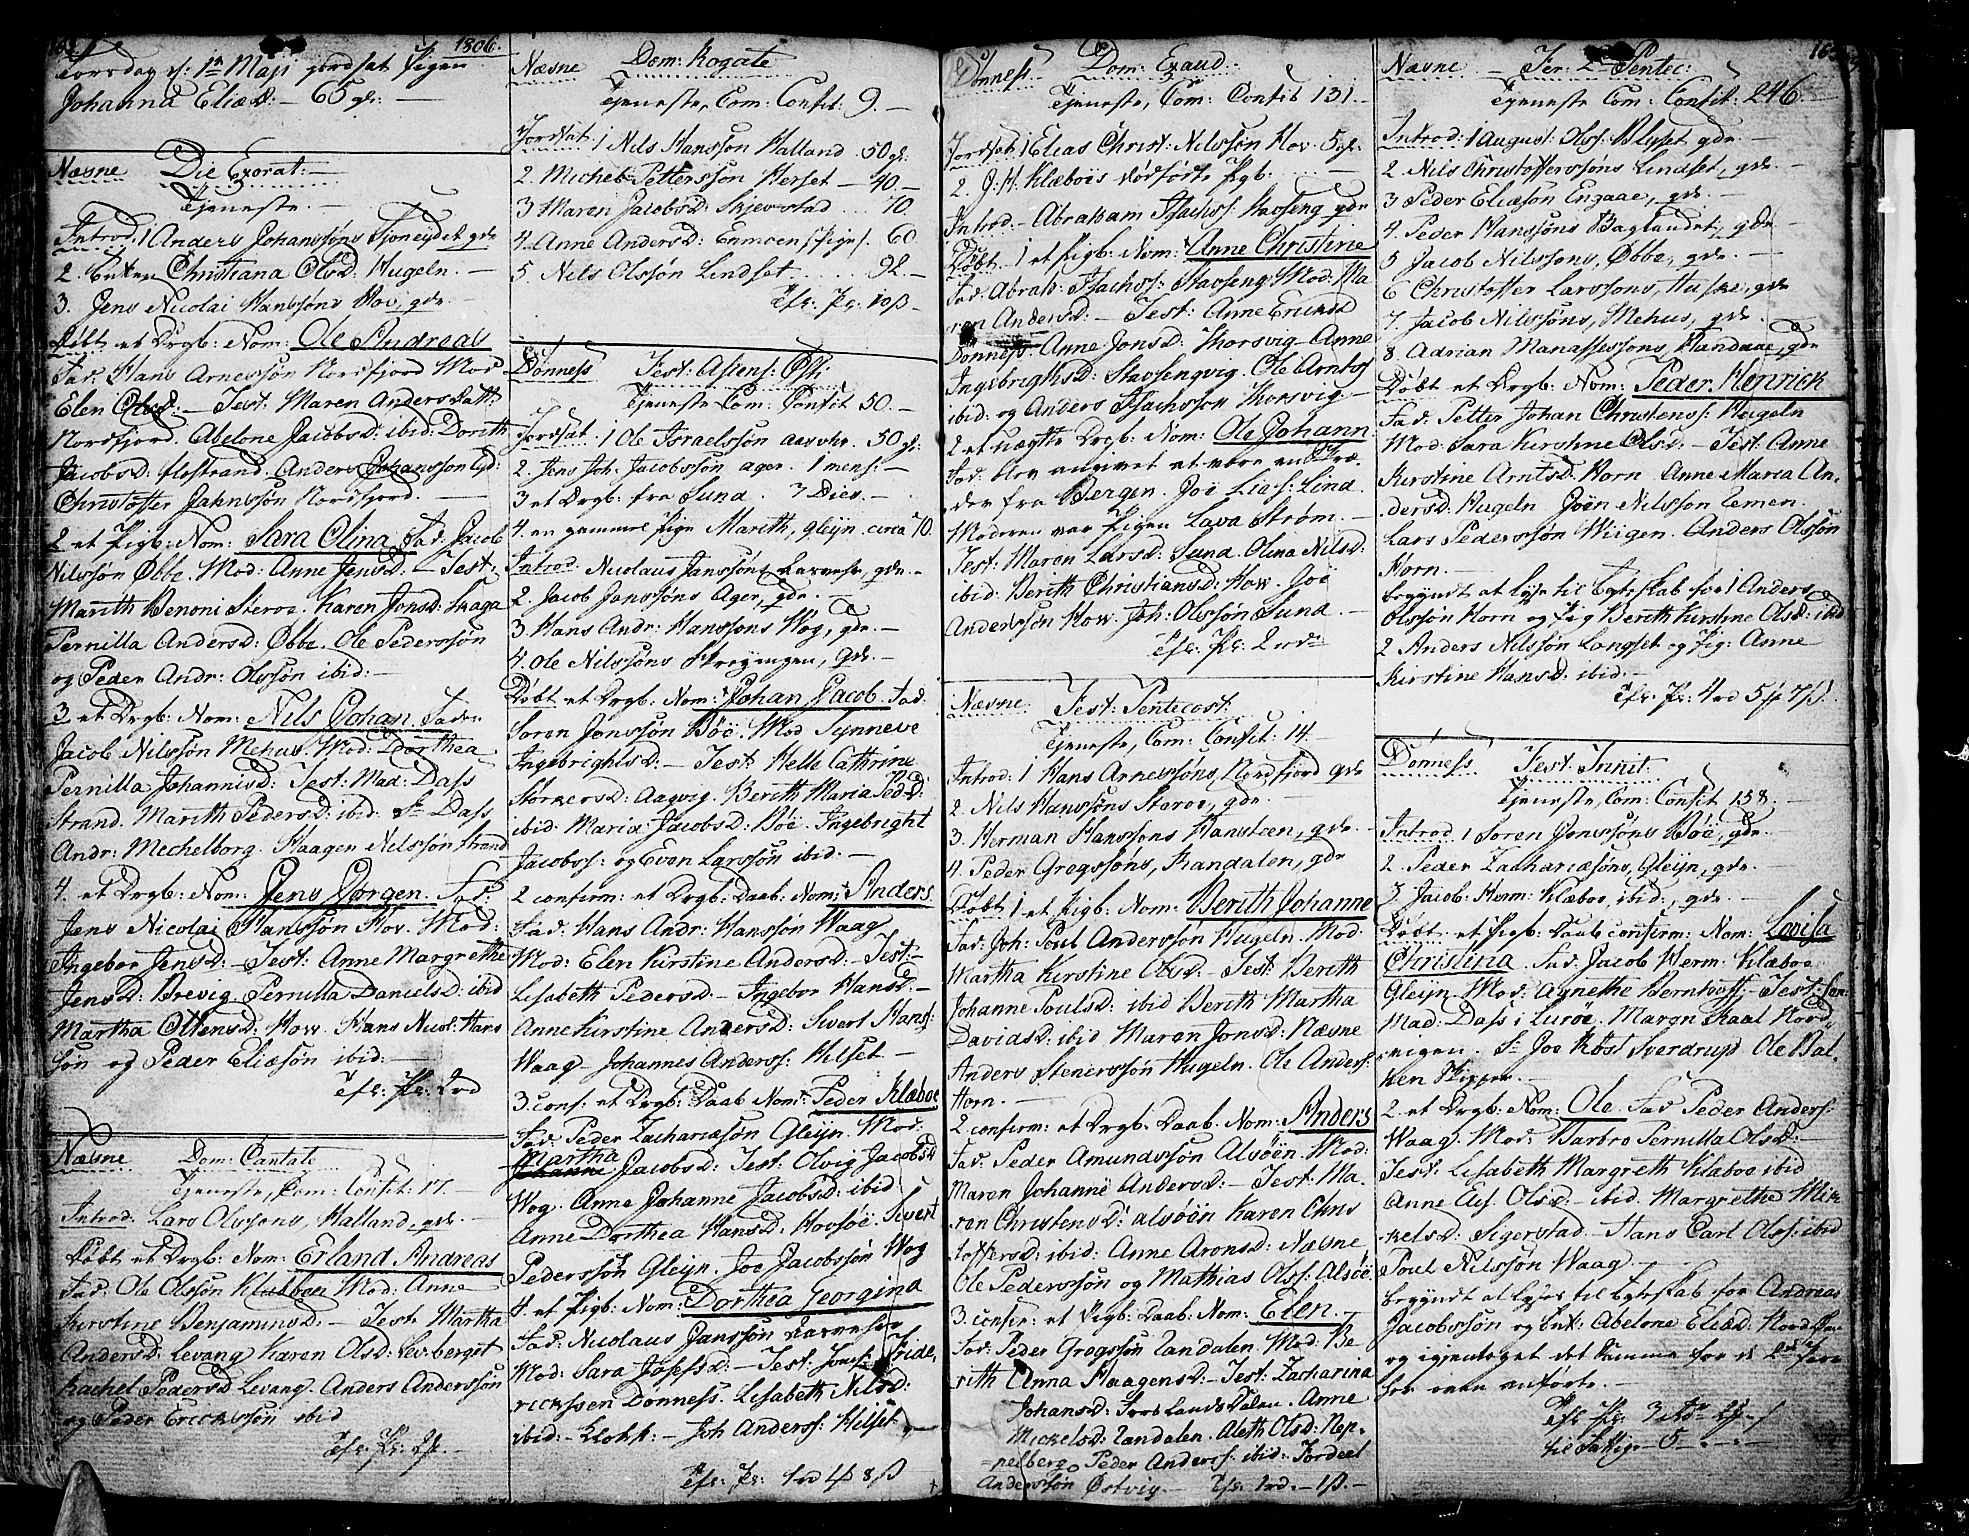 1806.
Torsdag d: 1te Maji jordsat Pigen
Johanna Eliæd: — 65 gl: —
Næsne Die Exorat: —
Tjeneste. —
Introd: 1 Anders Johanssøns Sjoneydet gde
2. Enken Christiana Olsd: Hugeln. —
3. Jens Nicolai Hanssøns Hov, gde. —
Døbt et Drgb: Nom: Ole Andreas
Fad: Hans Arnessøn Nordfjord Mod
Elen Olsd: — Test: Maren Andersdatt:
Nordfjord. Abelone Jacobsd: ibid: Dorith
Jacobsd: Flostrand. Anders Johanssøn
Christoffer Jahnssøn Nordfjord. —
2 et Pigb: Nom: Sara Olina Fad: Jacob
Nilssøn Øbbe. Mod: Anne Jensd: — Test:
Marith Benoni Steroe. Karen Jonsd: Skaga
Pernilla Andersd: Øbbe. Ole Pederssøn
og Peder Andr: Olssøn ibid: —
3 et Drgb: Nom: Nils Johan. Fader
Jacob Nilssøn Mehus. Mod: Dorthea
Pernilla Johannisd: Test: Mad: Dass
Strand. Marith Pedersd: ibid. Sr Dass
Andr: Mechelborg. Haagen Nilssøn Strand
4. et Drgb: Nom: Jens Jørgen. Fad:
Jens Nicolai Hanssøn Hov. Mod:
Ingebor Jensd: — Test: Anne Margrethe
Jensd: Brevig. Pernilla Danielsd: ibid
Martha Ottensd: How. Hans Nicol: Hans
søn og Peder Eliæsøn ibid: —
Næsne Dom: Cantate
Tjeneste, Com: Confit: 17. —
Introd: Lars Olssøns, Halland, gde. —
Døbt et Drgb: Nom: Erland Andreas
Fad: Ole Olssøn Klubben Mod: Anne
Kirstine Benjaminsd: — Test: Martha
Andersd: Levang Karen Olsd: Levberget
Rachel Pedersd Levang. Anders Anderssøn
og Peder Erickssøn ibid
Næsne Dom: Rogate
Tjeneste, Com: Confit: 9. —
Jordsat 1 Nils Hanssøn Halland 50 gl:
2. Michel Petterssøn Herset — 40. —
3 Maren Jacobsd: Skjevstad ... 70.
4. Anne Andersd: Enmoen, Pige. 60
5. Nils Olssøn Lindset ..... 92. —
Dønness Fest: Ascens: Xsti
Tjeneste Com: Confit 50. —
Jordsat. 1 Ole Israelssøn Aasvær. 50 gl:
2. Jens Joh: Jacobssøn Ager. 1 mens: —
3 et Drgb: fra Sund. 3 Dies. —
4. en gammel Pige Marith, Gleijn. circa 70.
Introd. Nicolaus Janssøns gde. —
2. Jacob Janssøns Ager, gde. —
3 Hans Andr: Hanssøns Wog, gde. —
4. Ole Nilssøns gde. —
Døbt et Drgb: Nom: Johan Jacob. Fad:
Søren Jonssøn Bøe. Mod Synneve
Ingebrightsd: — Test: Helle Cathrine
Storkersd: Aagvig. Berith Maria Ped:D:
ibid. Maria Jacobsd: Bøe. Ingebright
Jacobss: og Even Larssøn ibid: —
2 confirm: et Drgb: Daab: Nom: Anders
Fad: Hans Andr: Hanssøn Waag
Mod: Elen Kirstine Andersd: — Test: —
Lisabeth Pedersd: — Ingebor Hansd: —
Anne Kirstine Andersd: Sivert Hans:
Waag — Johannes Anderss: Hilset —
3. conf: et Drgb: Daab Nom: Peder Klæboe
Fad: Peder Zachariæsøn Gleijn. Mod:
Martha
Johanne Jacobsd: Test: Olvig Jacobsd
Wog. Anne Johanne Jacobsd: ibid:
Anne Dorthea Hansd: Hovsøe. Sivert
Pederssøn Gleijn. Joe Jacobssøn Wog
4. et Pigb: Nom: Dorthea Georgina
Fad: Nicolaus Janssøn
Mod: Sara Josefsd: — Test: Fride,
rickssen Dønness. Lisabeth Nilsd:
ibid: — Klokk: — Joh Anderss: Hilset
Dønness. Dom: Exaud.
Tjeneste, Com: Confit 131. —
Jordsat 1 Elias Christ: Nilssøn Hov. 5 gl:
2. J: H: Klæboes dødfødte Pigb. —
Introd. — Abraham Isachss: Stavseng gde
Døbt. 1 et Pigb: Nom: Anne Christine
Fad: Abrah: Isachss: Stavseng Mod: Ma
ren Andersd: — Test: Anne Ericksd
Dønness. Anne Jonsd: Thorsvig. Anne
Ingebrigthsd: Stavsengvig. Ole Arntss
ibid: og Anders Isachssøn Thorsvig —
2 et uægte Drgb: Nom: Ole Johann.
Fad: blev angivet at være
der fra Bergen. Joe Lies: Lind.
Moderen var Pigen Lava Strøm. —
Test: Maren Larsd: Sund. Olina Nilsd:
ibid: Berith Christiansd: How. Joe
Anderssøn How. Joh: Olssøn Sund. —
Næsne. Fest: Pentecost:
Tjeneste, Com: Confit: 14. —
Introd: 1 Hans Arnessøns, Nordfjord gde
2. Nils Hanssøns Steroe, gde. —
3. Herman Hanssøns Hansteen, gde. —
4. Peder Gregssøns, Randalen, gde
Døbt 1 et Pigb: Nom: Berith Johanne
Fad: Joh: Poul Anderssøn Hugeln. Mod:
Martha Kirstine Olsd: — Test: Berith
Johanne Poulsd: ibid Berith Martha
Davidsd: ibid Maren Jonsd: Næsne
Anders Stenerssøn Hugeln. Ole Anders:
Horn. —
2 confirm: et Drgb: Daab. Nom: Anders
Fad: Peder Amundssøn Alsøen. Mod:
Maren Johanne Andersd: — Test: Ma,
ren Christensd: Alsøen Karen Chris
toffersd: ibid: Anne Aronsd: Næsne
Ole Pederssøn og Mathias Olss: Alsøe.
3. confir: et Pigb: Daab. Nom: Elen. —
Fad: Peder Gregssøn Zandalen. Mod: Be
rith Anna Haagensd: — Test: Zacharina
Johansd: Forslandsdalen. Anne
Mickelsd: Zandalen. Aleth Olsd: Rep,
pelberg. Peder Anderss: ibid: Tordeel
Anderssøn Østvig. —
Næsne — Fer: 2 Pentec:
Tjeneste Com: Confit: 246
Introd: 1 August: Olss: Blyset gde —
2. Nils Christofferssøns Lindset, gde. —
3 Peder Eliæsøn Engaae, gde. —
4. Peder Hanssøns Baglandet, gde —
5 Jacob Nilssøns, Øbbe, gde. —
6 Christoffer Larssøns, Huske, gde
7. Jacob Nilssøns, Mehus, gde. —
8. Adrian Manassessøns, Handaae, gde
Døbt et Drgb: Nom: Peder Henrick
Fad: Petter Johan Christenss: Hugeln
Mod: Sara Kirstine Olsd: — Test: Anne
Kirstine Arntsd: Horn. Anne Maria An,
dersd: Hugeln Joen Nilssøn Zemen.
Lars Pederssøn Wiigen. Anders Olssøn
Horn. —
begyndt at lyse til Egteskab for 1 Anders
Olssøn Horn og Pig Berith Kirstine Olsd: ibid
2 Anders Nilssøn Langset og Pig: Anne
Kirstine Hansd: ibid. —
Dønness Fest: Trinit:
Tjeneste, Com: Confit 158. —
Introd 1 Søren Jonssøns Bøe, gde. —
2. Peder Zachariæsøns, Gleijn, gde.
3 Jacob: Herm: Klæboe, ibid:, gde. —
Døbt. et Pigb: Daab confirm: Nom: Lovisa
Christina. Fad: Jacob Herm: Klæboe
Gleijn. Mod: Agnethe Bernhoft — Test:
Mad: Dass i Lurøe. Maren Kaal Nord
vigen. Sr Joe Røst Sverdrup. Ole Bal,
ken Skipper. —
2. et Drgb: Nom: Ole. Fad Peder Anders:
Waag. Mod: Barbro Pernilla Olsd: —
Test. Lisabeth Margreth Klæboe ibid
Anne Els. Olsd: — ibid. Margrethe Mic
kelsd: Sigerstad. Hans Carl Olss: ibid
Poul Nilssøn Waag. —
begyndt at lyses til Egteskab for Andreas
Jacobssøn og Enk: Abelone Eliæd:
og igjentaget det samme for de 2de Par
her oven anførte. —